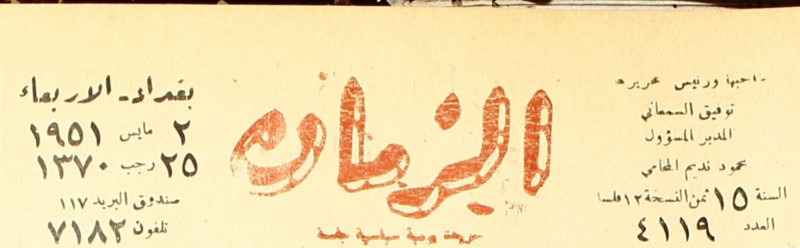 صاحبها ورئيس تحريرها
توفيق السمعاني
المدير المسؤول
محمود نديم المحامي
السنة ١٥ ثمن النسخة ١٢ فلسا
العدد ٤١١٩
الزمان
جريدة يومية سياسية
بغداد - الاربعاء
٢ مايس ١٩٥١
٢٥ رجب ١٣٧٠
صندوق البريد ١١٧
تلفون ٧١٨٣